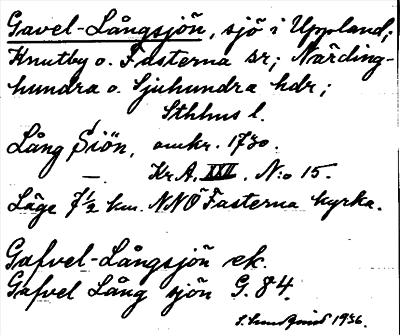 Gavel-Långsjön, sjö i Uppland;
Knutby o. Fasterna sr; Närding-
hundra o. Sjuhundra hdr;
Sthlms l.
Lång Siön, omkr. 1730.
— Kr. A. XXI. N:o 15.
Läge 7½ km. NNÖ Fasterna kyrka.
Gafvel-Långsjön ek.
Gafvel Lång sjön G. 84.
1936.